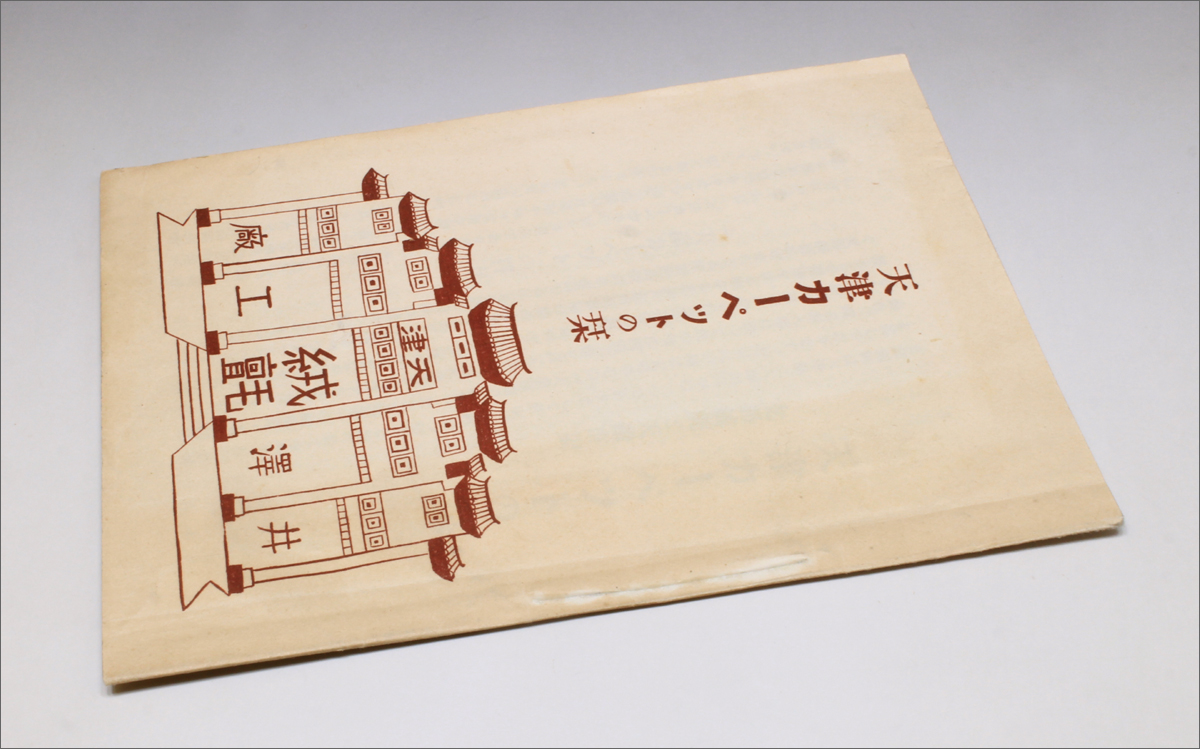 天津カーペットの栞
天津
井澤絨氈工廠